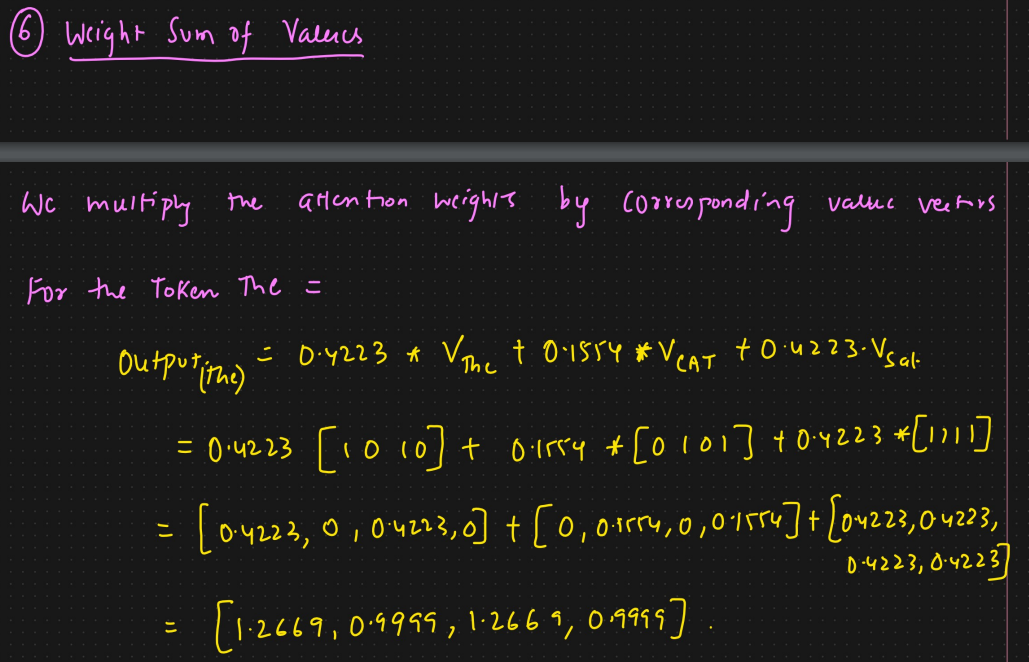 ⑥ Weight Sum of Values
We multiply the attention weights by corresponding value vectors
For the Token The =
Output(The) = 0.4223 * V_The + 0.1554 * V_CAT + 0.4223 . V_Sat
= 0.4223 [1 0 1 0] + 0.1554 * [0 1 0 1] + 0.4223 * [1 1 1 1]
= [0.4223, 0, 0.4223, 0] + [0, 0.1554, 0, 0.1554] + [0.4223, 0.4223,
0.4223, 0.4223]
= [1.2669, 0.9999, 1.2669, 0.9999] .